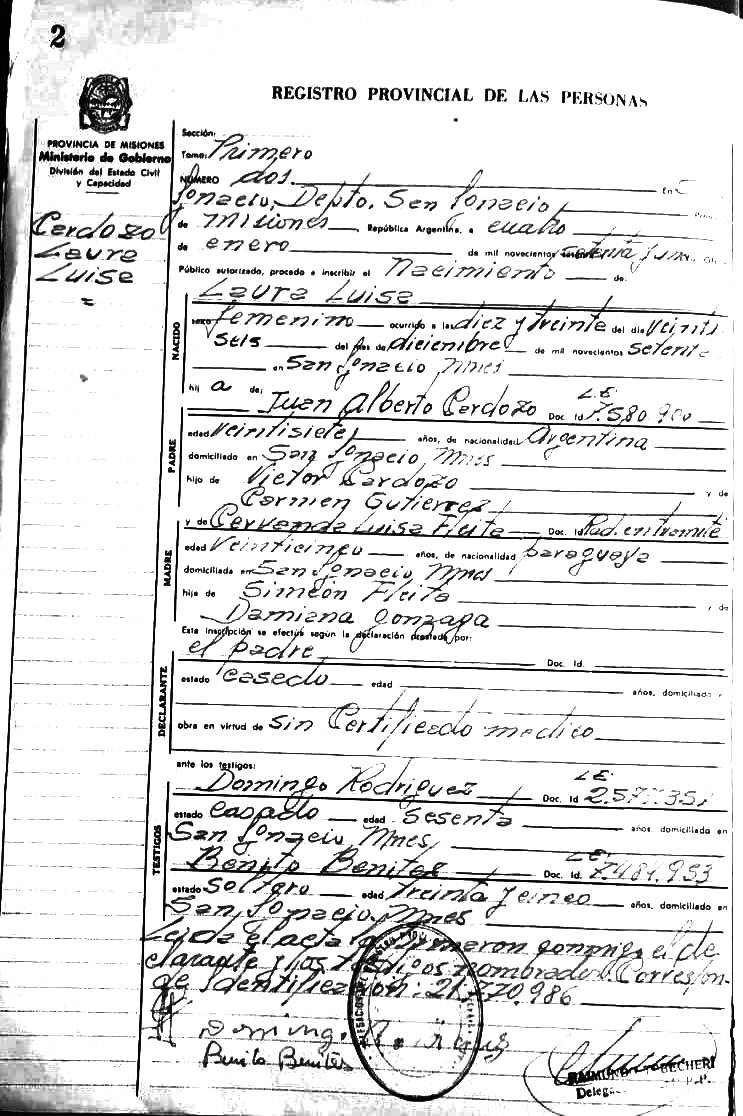 2
REGISTRO PROVINCIAL DE LAS PERSONAS
PROVINCIA DE MISIONES
Ministerio de Gobierno
División del Estado Civil
y Capacidad
Cardozo
Laura
Luisa
=
Sección:
Tomo: Primero
NÚMERO dos En S
Ignacio, Depto. San Ignacio
de Misiones, República Argentina, a cuatro
de enero de mil novecientos setenta y uno
Público autorizado, procedo a inscribir el Nacimiento de:
NACIDO
Laura Luisa
sexo femenino ocurrido a las diez y treinta del día veinti
seis del mes de diciembre de mil novecientos setenta
en San Ignacio, Mnes
hij a de: L.E.
Juan Alberto Cardozo Doc. Id 7.580.900
PADRE
edad veintisiete años, de nacionalidad Argentina
domiciliado en San Ignacio, Mnes
hijo de Victor Cardozo y de
Carmen Gutierrez
MADRE
y de Cervanda Luisa Fleita Doc. Id. Rad. en tramite
edad veinticinco años, de nacionalidad paraguaya
domiciliada en San Ignacio, Mnes
hija de Simeón Fleita y de
Damiana Gonzaga
Esta inscripción se efectúa según la declaración prestada por:
DECLARANTE
el padre Doc. Id.
estado casado edad años, domiciliado
obra en virtud de sin Certificado medico
ante los testigos:
TESTIGOS
Domingo Rodriguez L.E. Doc. Id
estado casado edad sesenta años, domiciliado en
San Ignacio, Mnes
Benito Benitez L.E. Doc. Id. 7.484.953
estado soltero edad treinta y cinco años, domiciliado en
San Ignacio, Mnes
Leida el acta la firmaron conmigo el de
clarante y los testigos nombrados. Correspon-
de Identificación: 21.770.986
Domingo
Benito Benites
Deleg